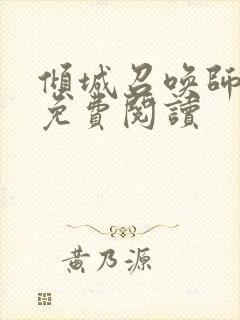 傾城召喚師
免費閱讀
黃乃源